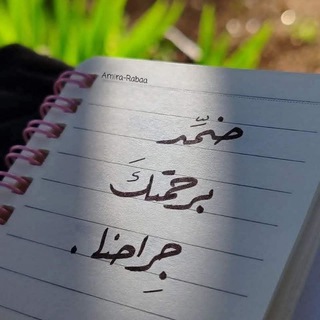 Amira-Rabaa
ضمِّد
برحمتكَ
جِراحنا.